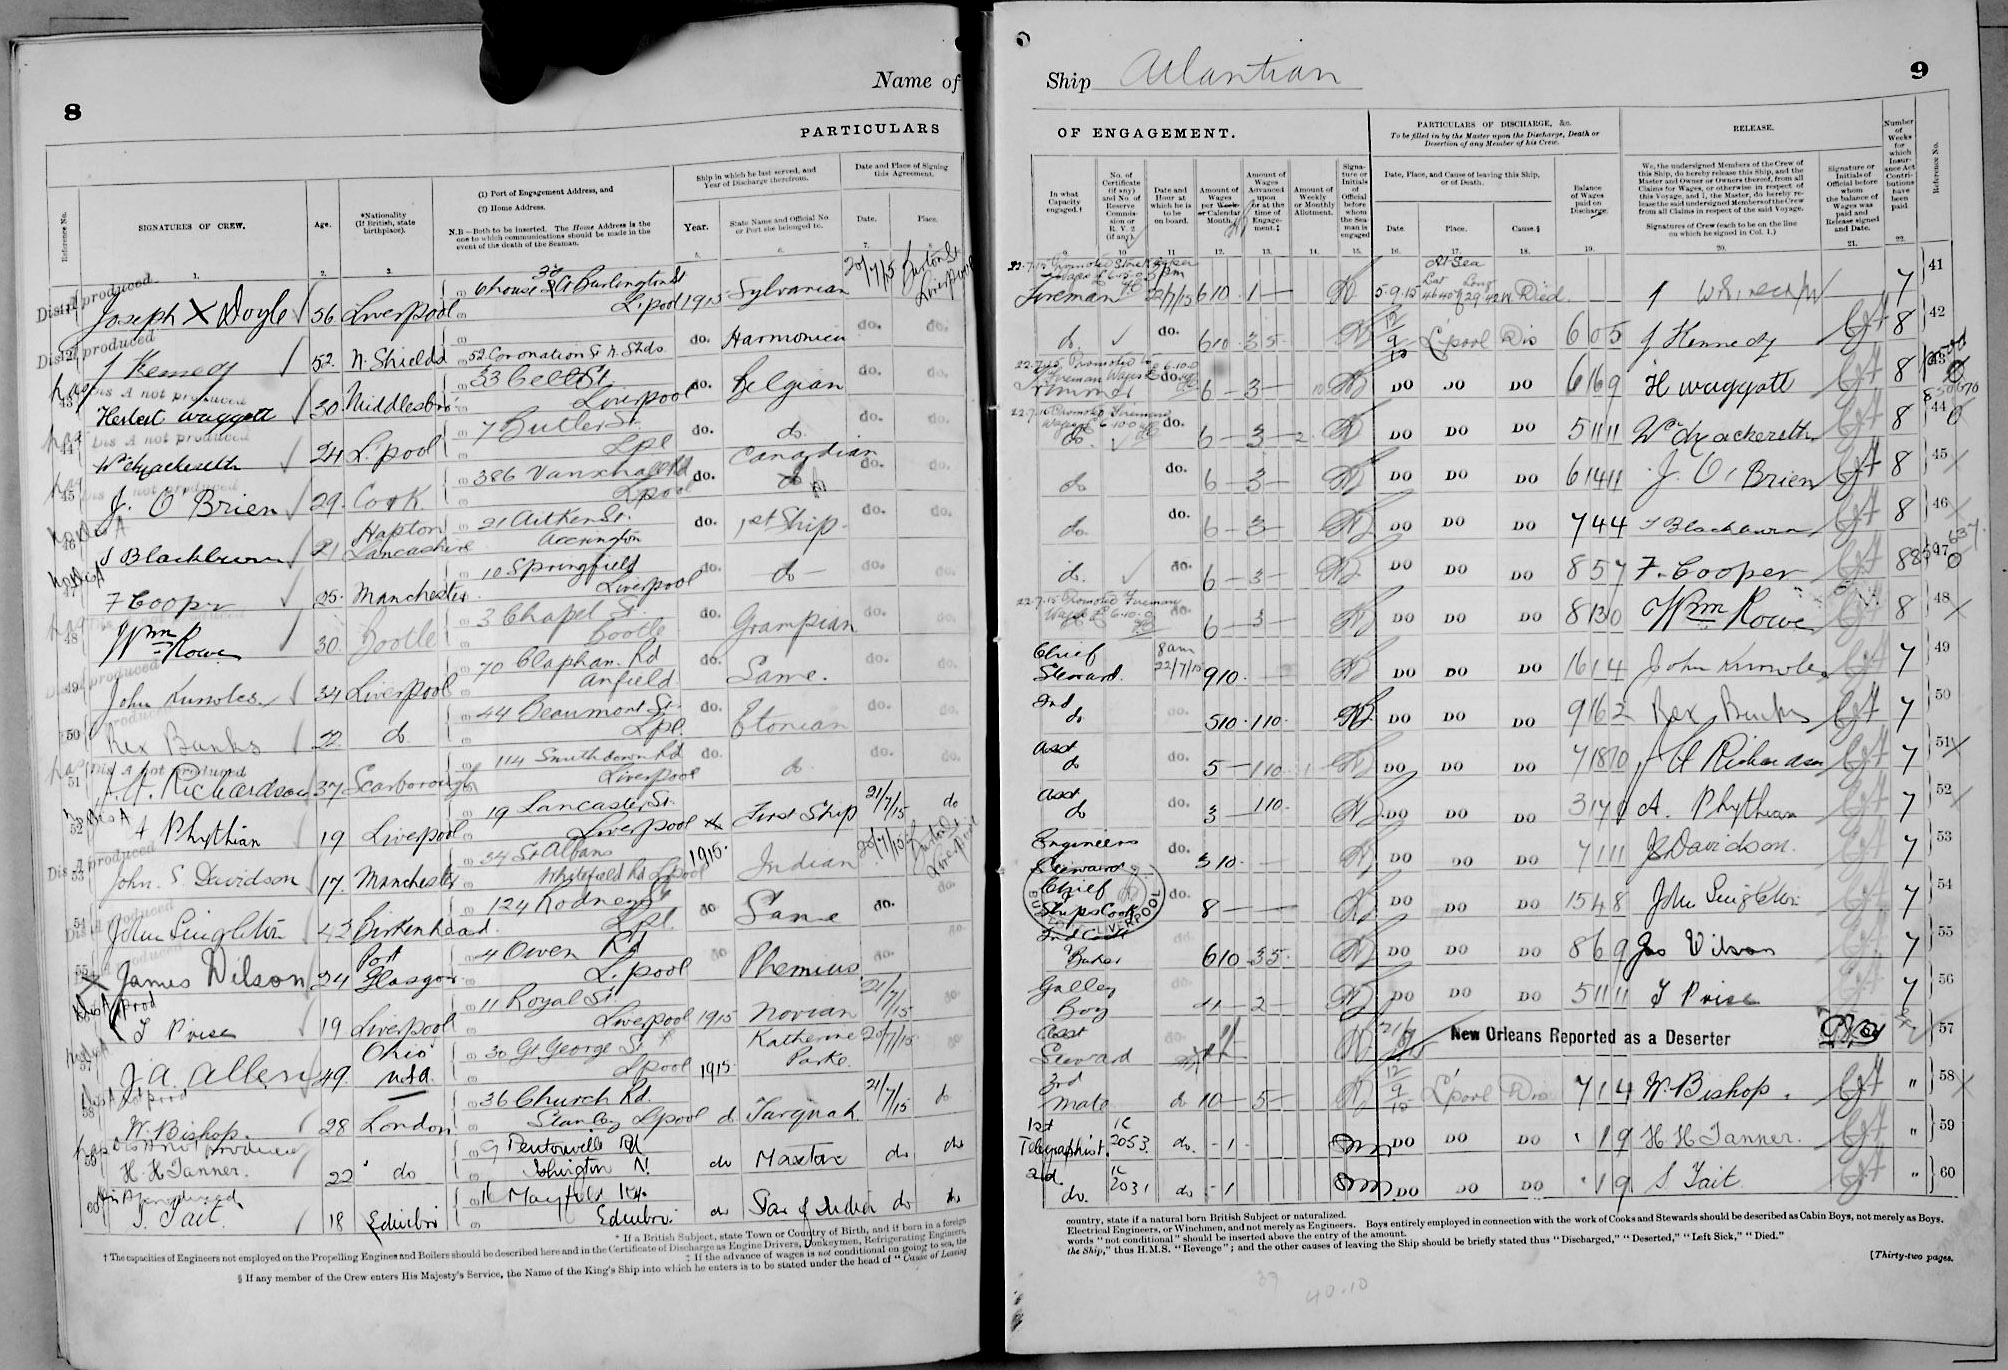 8
Name of
PARTICULARS
Reference No.
SIGNATURES OF CREW.
Age.
*Nationality
(If British, state
birthplace).
(1) Port of Engagement Address, and
(2) Home Address.
N.B—Both to be inserted. The Home Address is the
one to which communications should be made in the
event of the death of the Seaman.
Ship in which he last served, and
Year of Discharge therefrom.
Year.
State Name and Official No.
or Port she belonged to.
Date and Place of Signing
this Agreement.
Date.
Place.
1. 2. 3. 5. 6. 7.
Dis A produced
Joseph X Doyle 56 Liverpool 6 house A Burlington St L'pool 1915 Sylvanian 20/7/15 Liverpool
Dis A produced
J Kennedy 52. N. Shields 52 Coronation St N. Shds do. Harmonien do. do.
Dis A not produced
43 Herbert Waggott 30 Middlesbro' 33 Cell St Liverpool do. Belgian do. do.
Dis A not produced
44 24 L'pool 7 Butler St. Lpl do. do. do. do.
Dis A not produced
45 J. O'Brien 29. Cork 386 Vauxhall Rd L'pool do. Canadian do. do.
No Dis A
46 J Blackburn 21 Hapton Lancashire 21 Aitken St. Accrington do. 1st Ship do. do.
No Dis A
F Cooper 25. Manchester 10 Springfield Liverpool do. do do. do.
48 Wm Rowe 30. Bootle 3 Chapel St. Bootle do. Grampian do. do.
Dis A produced
49 John Knowles 34 Liverpool 70 Clapham Rd Anfield do. Same. do. do.
50 Rex Banks 22. do 44 Beaumont St. Lpl. do. Etonian do. do.
Dis A not produced
51 J. H. Richardson 37 Scarborough 114 Smithdown Rd Liverpool do. do. do. do.
No Dis A
52 A Phythian 19 Liverpool 19 Lancaster St. Liverpool First Ship 21/7/15 do
Dis A produced
53 John. S. Davidson 17. Manchester 34 St Albans Whitefield Rd L'pool 1915. Indian 20/7/15 Liverpool
54 John Singleton 42 Birkenhead. 124 Rodney St Lpl. do Same do. do.
55 James Wilson 24 Port Glasgow 4 Owen Rd L'pool do Phemius do. do.
Dis A prod
T Price 19 Liverpool 11 Royal St. Liverpool 1915 Novian 21/7/15 do.
No Dis A
57 J. A. Allen 49. Ohio U.S.A. 30 Gt George St L'pool 1915 Katherine Parke 20/7/15 do
Dis A prod
58 W. Bishop. 28 London 36 Church Rd. Stanley L'pool do Tarquah 21/7/15 do
Dis A not produced
59 H. H. Tanner. 22 do 9 Pentonville Rd Islington N. do do do
60 S. Tait. 18 Edinbro' 16 Edinbro. do Star of India do do
* If a British Subject, state Town or Country of Birth, and if born in a foreign
† The capacities of Engineers not employed on the Propelling Engines and Boilers should be described here and in the Certificate of Discharge as Engine Drivers, Donkeymen, Refrigerating Engineers,
‡ If the advance of wages is not conditional on going to sea, the
§ If any member of the Crew enters His Majesty's Service, the Name of the King's Ship into which he enters is to be stated under the head of "Cause of Leaving
Ship Atlantian
9
OF ENGAGEMENT.
PARTICULARS OF DISCHARGE, &c.
To be filled in by the Master upon the Discharge, Death or
Desertion of any Member of his Crew.
RELEASE.
In what
Capacity
engaged.†
No. of
Certificate
(if any)
and No. of
Reserve
Commis-
sion or
R. V. 2
(if any).
Date and
Hour at
which he is
to be
on board.
Amount of
Wages
per Week
or Calendar
Month.
Amount of
Wages
Advanced
upon
or at the
time of
Engage-
ment.‡
Amount of
Weekly
or Monthly
Allotment.
Signa-
ture or
Initials
of
Official
before
whom
the Sea-
man is
engaged
Date, Place, and Cause of leaving this Ship,
or of Death.
Date.
Place.
Cause.§
Balance
of Wages
paid on
Discharge.
We, the undersigned Members of the Crew of
this Ship, do hereby release this Ship, and the
Master and Owner or Owners thereof, from all
Claims for Wages, or otherwise in respect of
this Voyage, and I, the Master, do hereby re-
lease the said undersigned Members of the Crew
from all Claims in respect of the said Voyage.
Signatures of Crew (each to be on the line
on which he signed in Col. 1.)
Signature or
Initials of
Official before
whom
the balance of
Wages was
paid and
Release signed
and Date.
Number
of
Weeks
for
which
Insur-
ance Act
Contri-
butions
have
been
paid
Reference No.
9. 10. 11. 12. 13. 14. 15. 16. 17. 18. 19. 20. 21. 22.
22.7.15 Promoted Storekeeper
Fireman 22/7/15 6 10 1 5.9.15 At Sea Lat Long Died 7 41
do. do. 6 10 3 5 12/9/15 L'pool Dis 6 0 5 J Kennedy 8 42
22.7.15 Promoted to Fireman Wages £6.10.0
Trimmer do. 6 3 DO DO DO 6 16 9 H Waggott 8 43
22.7.15 Promoted Fireman Wages £6.10.0
do. do. 6 3 2 DO DO DO 5 11 11 8 44
do do. 6 3 DO DO DO 6 14 11 J. O'Brien 8 45
do. do. 6 3 DO DO DO 7 4 4 J Blackburn 8 46
do. do. 6 3 DO DO DO 8 5 7 F. Cooper 8 47
22.7.15 Promoted Fireman Wages £6.10.0
do. 6 3 DO DO DO 8 13 0 Wm Rowe 8 48
Chief Steward. 8am 22/7/15 9 10. DO DO DO 16 1 4 John Knowles 7 49
2nd do do. 5 10 1 10 DO DO DO 9 16 2 Rex Banks 7 50
Asst do do. 5 1 10 1 DO DO DO 7 18 10 J H Richardson 7 51
Asst do do. 3 1 10. DO DO DO 3 17 0 A. Phythian 7 52
Engineers Steward do. 3 10 DO DO DO 7 1 11 J S Davidson. 7 53
Chief Ships Cook do. 8 DO DO DO 15 4 8 John Singleton 7 54
2nd Cook Baker do. 6 10 3 5 DO DO DO 8 6 9 Jas Wilson 7 55
Galley Boy do. 4 2 DO DO DO 5 11 11 T Price 7 56
Asst Steward do New Orleans Reported as a Deserter 57
3rd Mate do 10 5 12/9/15 L'pool Dis 7 1 4 W. Bishop. " 58
1st Telegraphist. 2053. do. 1 DO DO DO 1 9 H H Tanner. " 59
2d. do. 2031 do 1 DO DO DO 1 9 S Tait. " 60
LIVERPOOL
country, state if a natural born British Subject or naturalized.
Electrical Engineers, or Winchmen, and not merely as Engineers. Boys entirely employed in connection with the work of Cooks and Stewards should be described as Cabin Boys, not merely as Boys.
words "not conditional" should be inserted above the entry of the amount.
the Ship," thus H.M.S. "Revenge"; and the other causes of leaving the Ship should be briefly stated thus "Discharged," "Deserted," "Left Sick," "Died."
[Thirty-two pages.
39 40.10